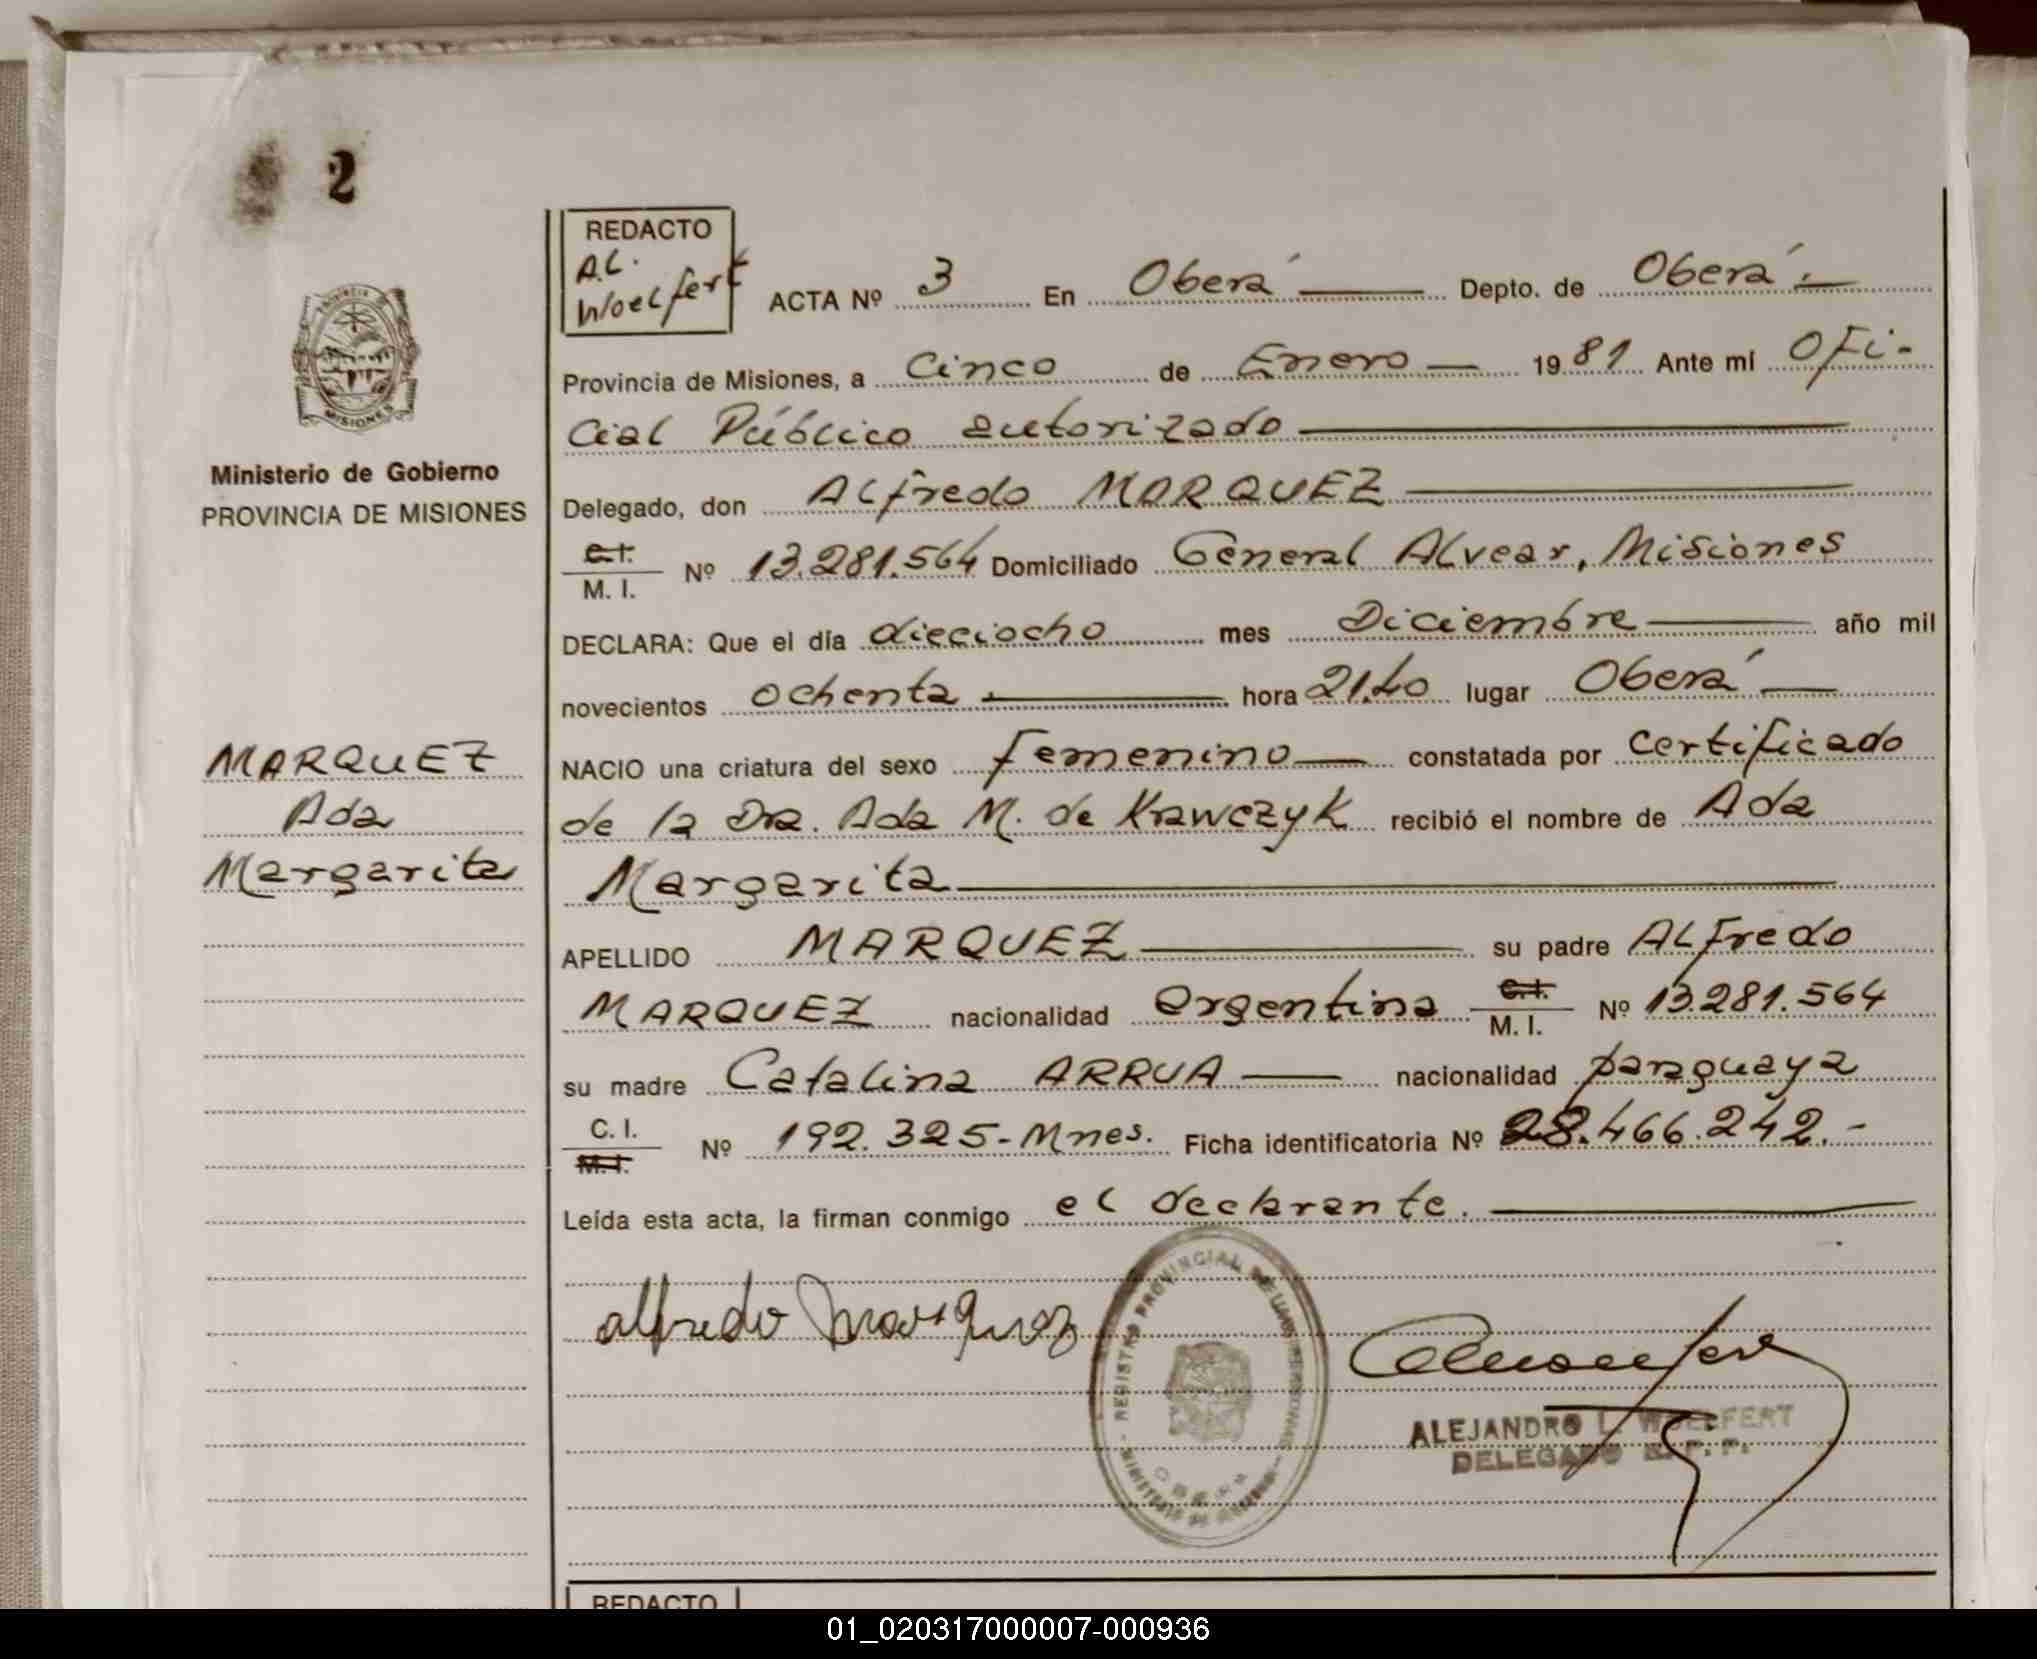 2
REDACTO
A.L.
Woelfert
ACTA Nº 3 En Oberá Depto. de Oberá.
Provincia de Misiones, a Cinco de Enero 1981 Ante mí Ofi-
cial Público autorizado
Delegado, don Alfredo MARQUEZ
C.I.
M. I. Nº 13.281.564 Domiciliado General Alvear, Misiones
DECLARA: Que el día dieciocho mes Diciembre año mil
novecientos ochenta hora 21.40 lugar Oberá
NACIO una criatura del sexo femenino constatada por certificado
de la Dra. Ada M. de Krawczyk recibió el nombre de Ada
Margarita
APELLIDO MARQUEZ su padre Alfredo
MARQUEZ nacionalidad argentina C.I.
M. I. Nº 13.281.564
su madre Catalina ARRUA nacionalidad paraguaya
C. I.
M.I. Nº 192.325-Mnes. Ficha identificatoria Nº 28.466.242.-
Leída esta acta, la firman conmigo el declarante.
Alfredo Marquez
REGISTRO PROVINCIAL DE LAS PERSONAS
ALEJANDRO L. WOELFERT
DELEGADO
PROVINCIA
MISIONES
Ministerio de Gobierno
PROVINCIA DE MISIONES
MARQUEZ
Ada
Margarita
REDACTO
01_020317000007-000936